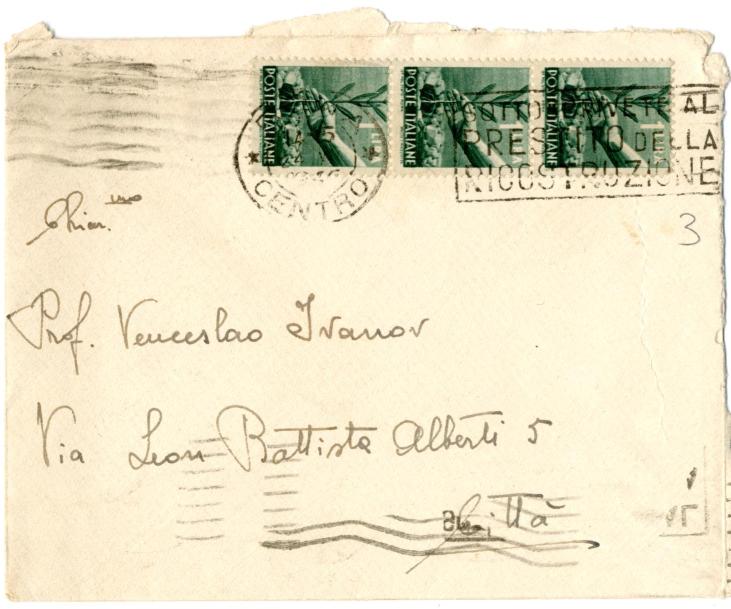 POSTE ITALIANE POSTE ITALIANE POSTE ITALIANE
CENTRO
SOTTOSCRIVETE AL
PRESTITO DELLA
RICOSTRUZIONE
3
Chiar.mo
Prof. Venceslao Ivanov
Via Leon Battista Alberti 5
Città
15